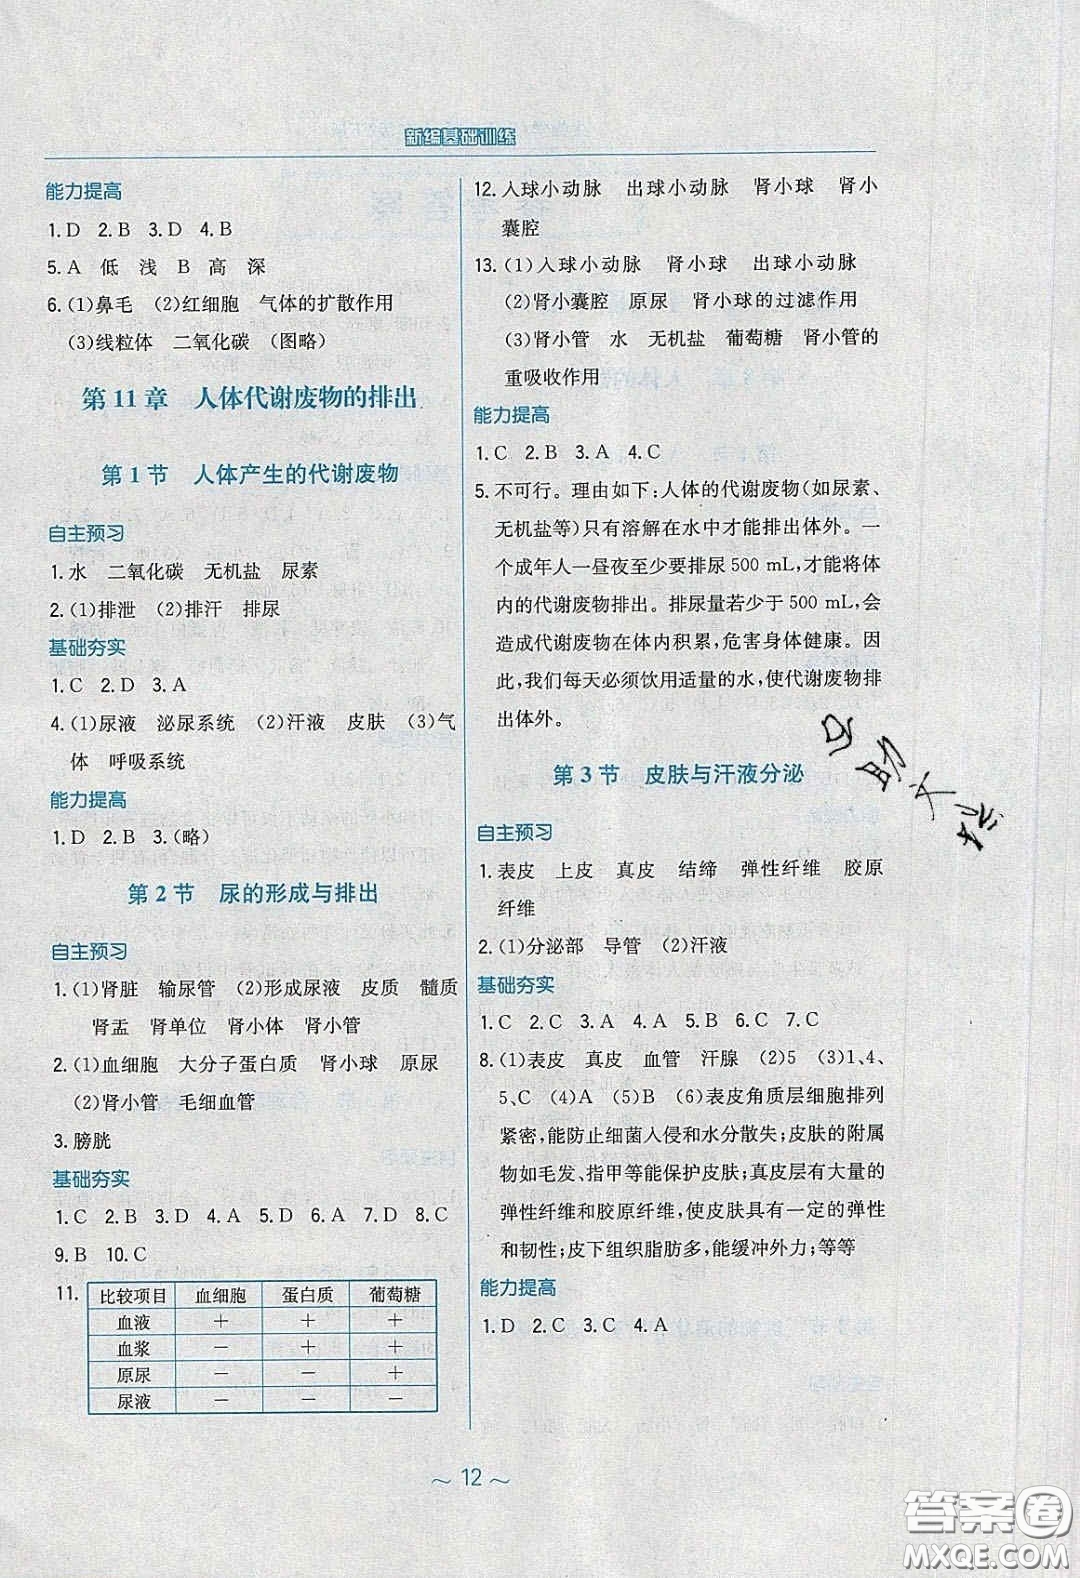 新编基础训练
能力提高
1.D 2.B 3.D 4.B
5.A 低 浅 B 高 深
6.(1)鼻毛 (2)红细胞 气体的扩散作用
(3)线粒体 二氧化碳 (图略)
第11章 人体代谢废物的排出
第1节 人体产生的代谢废物
自主预习
1.水 二氧化碳 无机盐 尿素
2.(1)排泄 (2)排汗 排尿
基础夯实
1.C 2.D 3.A
4.(1)尿液 泌尿系统 (2)汗液 皮肤 (3)气
体 呼吸系统
能力提高
1.D 2.B 3.(略)
第2节 尿的形成与排出
自主预习
1.(1)肾脏 输尿管 (2)形成尿液 皮质 髓质
肾盂 肾单位 肾小体 肾小管
2.(1)血细胞 大分子蛋白质 肾小球 原尿
(2)肾小管 毛细血管
3.膀胱
基础夯实
1.C 2.B 3.D 4.A 5.D 6.A 7.D 8.C
9.B 10.C
11.
比较项目 血细胞 蛋白质 葡萄糖
血液 + + +
血浆 - + +
原尿 - - +
尿液 - - -
12.入球小动脉 出球小动脉 肾小球 肾小
囊腔
13.(1)入球小动脉 肾小球 出球小动脉
(2)肾小囊腔 原尿 肾小球的过滤作用
(3)肾小管 水 无机盐 葡萄糖 肾小管的
重吸收作用
能力提高
1.C 2.B 3.A 4.C
5.不可行。理由如下:人体的代谢废物(如尿素、
无机盐等)只有溶解在水中才能排出体外。一
个成年人一昼夜至少要排尿500 mL,才能将体
内的代谢废物排出。排尿量若少于500 mL,会
造成代谢废物在体内积累,危害身体健康。因
此,我们每天必须饮用适量的水,使代谢废物排
出体外。
第3节 皮肤与汗液分泌
自主预习
1.表皮 上皮 真皮 结缔 弹性纤维 胶原
纤维
2.(1)分泌部 导管 (2)汗液
基础夯实
1.C 2.C 3.A 4.A 5.B 6.C 7.C
8.(1)表皮 真皮 血管 汗腺 (2)5 (3)1、4、
5、C (4)A (5)B (6)表皮角质层细胞排列
紧密,能防止细菌入侵和水分散失;皮肤的附属
物如毛发、指甲等能保护皮肤;真皮层有大量的
弹性纤维和胶原纤维,使皮肤具有一定的弹性
和韧性;皮下组织脂肪多,能缓冲外力;等等
能力提高
1.D 2.C 3.C 4.A
~ 12 ~
答案圈
MXQE.COM